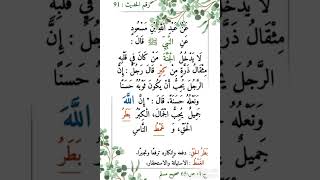 رقم الحديث : 91
عَنْ عَبْدِ اللَّهِ بْنِ مَسْعُودٍ
عَنِ النَّبِيِّ ﷺ قَالَ :
لَا يَدْخُلُ الْجَنَّةَ مَنْ كَانَ فِي قَلْبِهِ
مِثْقَالُ ذَرَّةٍ مِنْ كِبْرٍ قَالَ رَجُلٌ : إِنَّ
الرَّجُلَ يُحِبُّ أَنْ يَكُونَ ثَوْبُهُ حَسَنًا
وَنَعْلُهُ حَسَنَةً، قَالَ : " إِنَّ اللَّهَ
جَمِيلٌ يُحِبُّ الْجَمَالَ، الْكِبْرُ بَطَرُ
الْحَقِّ، وَ غَمْطُ النَّاسِ
بَطَرُ الحَقِّ: دفعه وإنكاره ترفعًا وتجبرًا.
الْغَمْطُ: الاستهانة والاستحقار.
صحيح مسلم